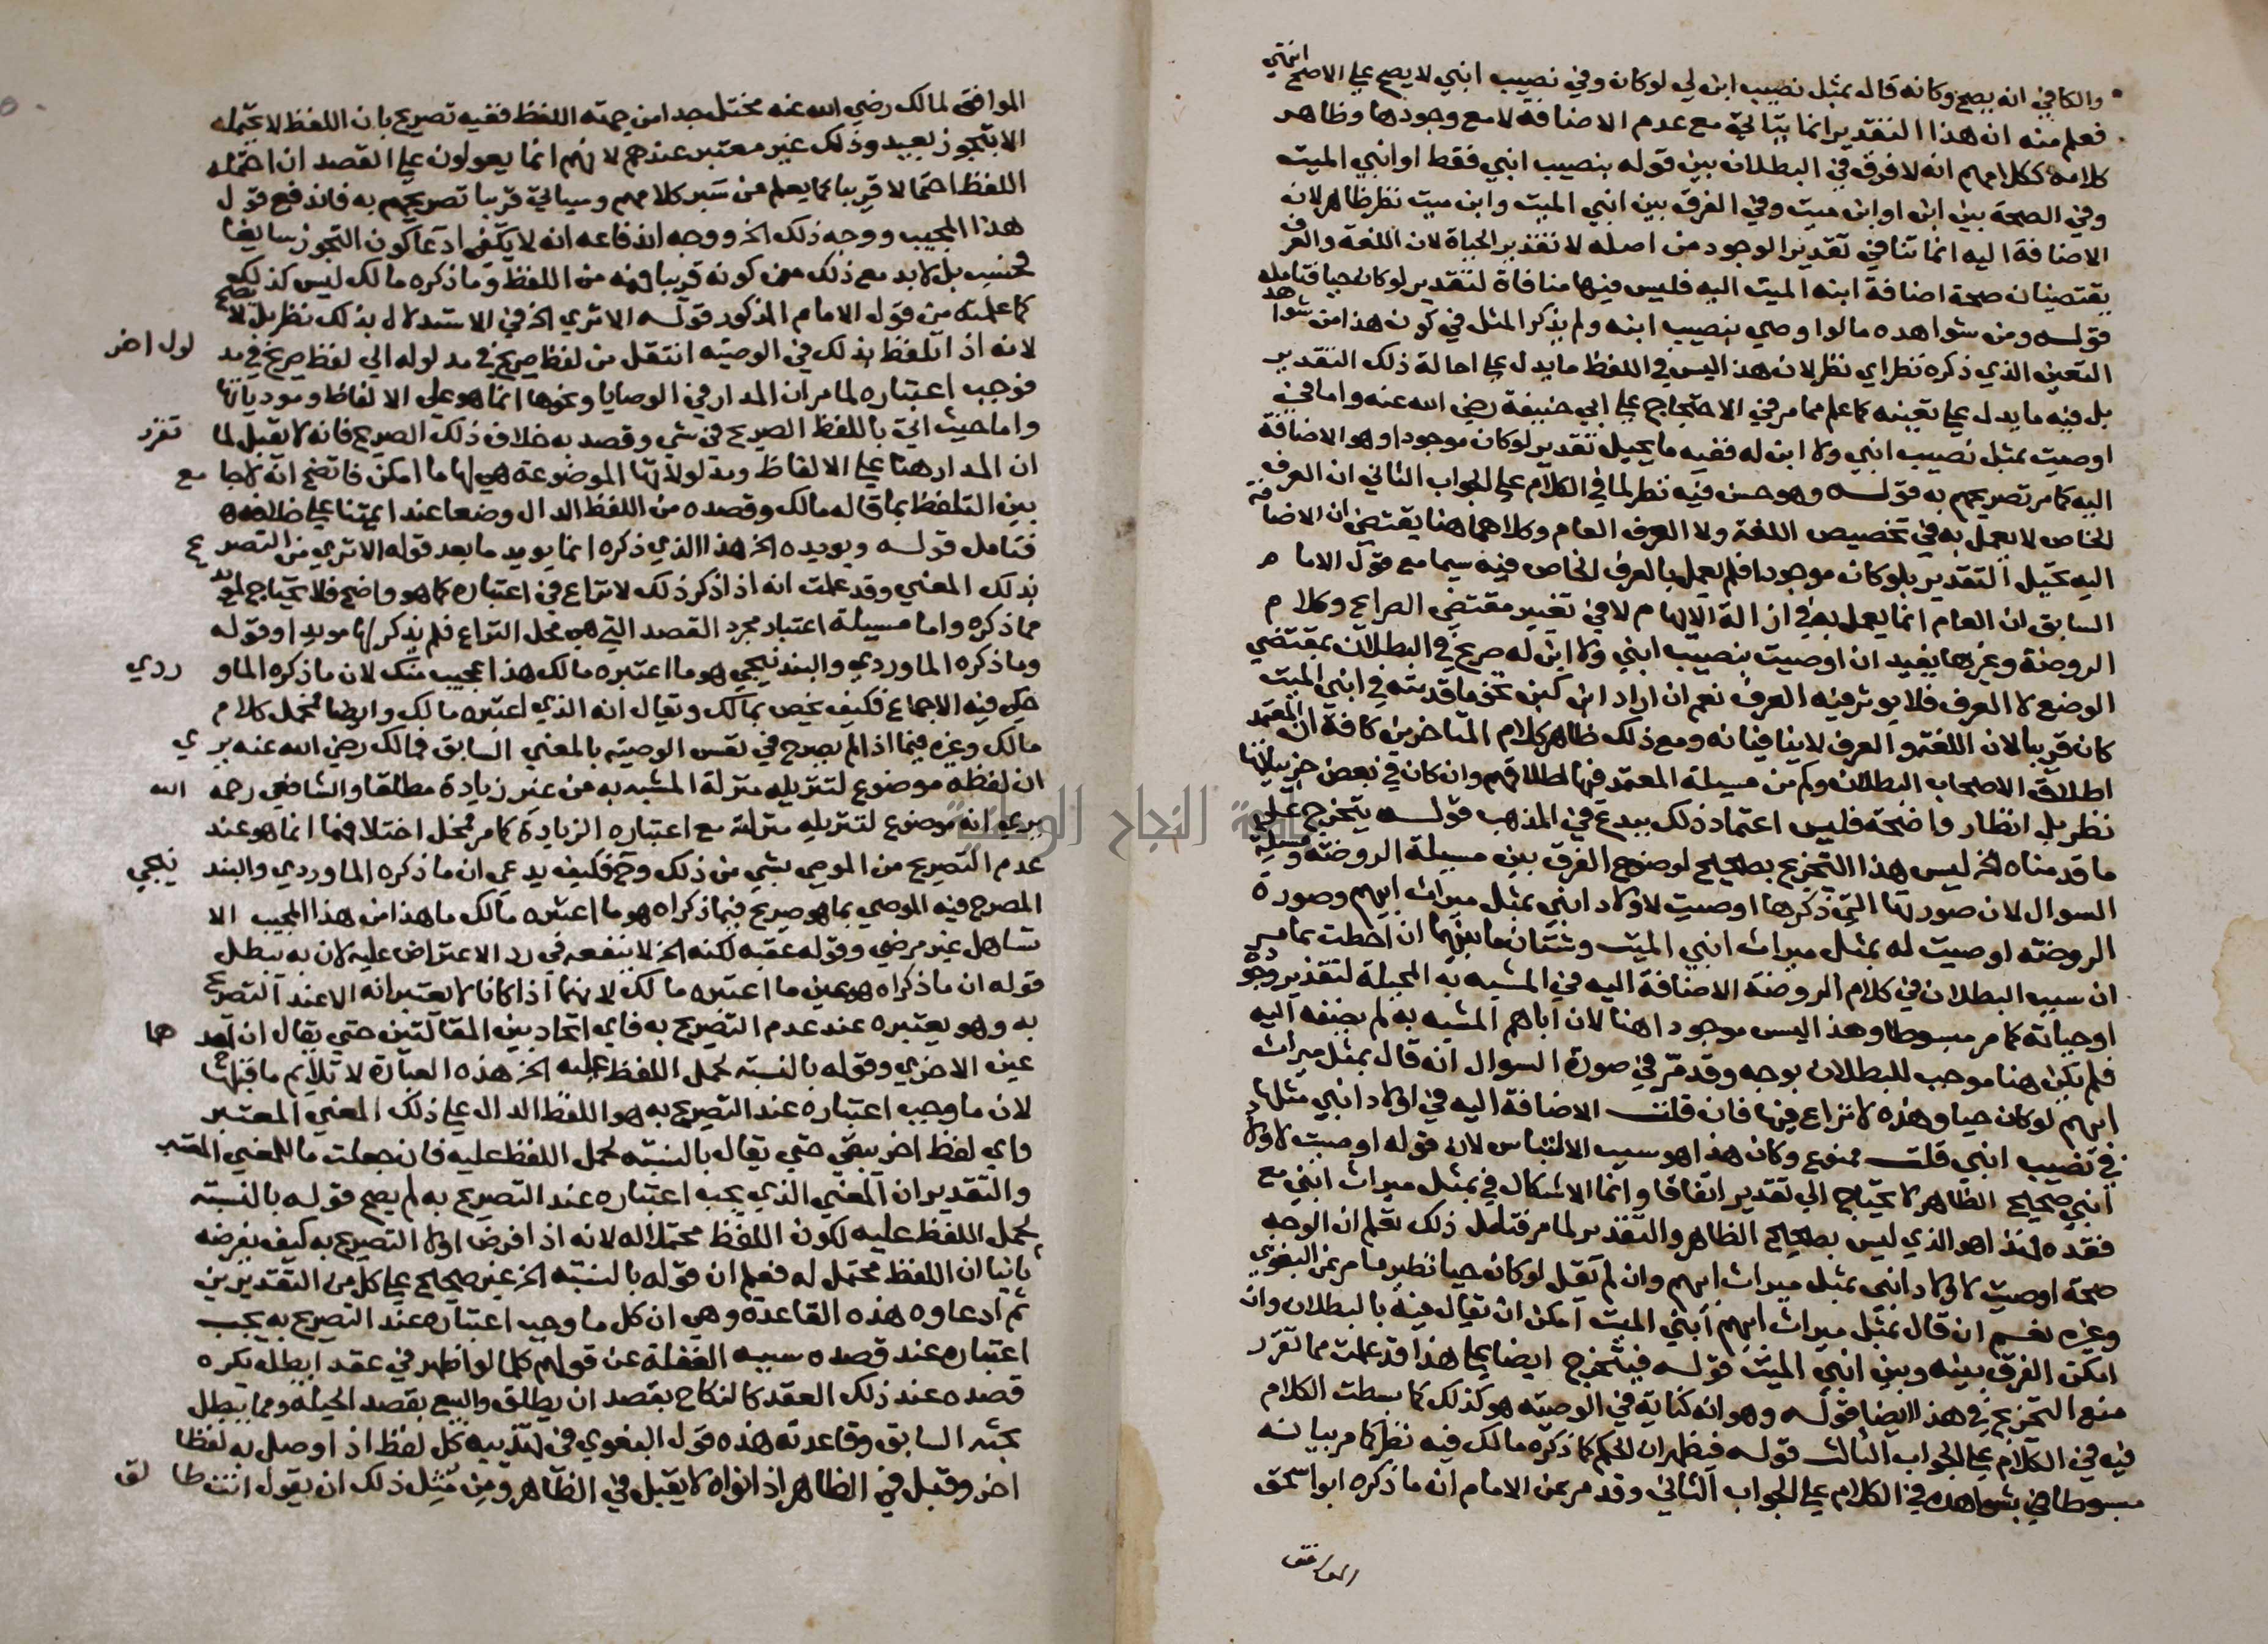 والكافي انه يصح وكانه قال بمثل نصيب ابن لي لوكان وفي نصيب ابني لا يصح علي الاصح انتهي
فعلم منه ان هذا التقدير انما يتاتي مع عدم الاضافة لا مع وجودها وظاهر
كلامه ككلامهم انه لا فرق في البطلان بين قوله بنصيب ابني فقط او ابني الميت
وفي الصحة بين ابن او ابن ميت وفي الفرق بين ابني الميت وابن ميت نظر ظاهر لان
الاضافة اليه انما تنافي تقدير الوجود من اصله لا تقدير الحياة لان اللغة والعرف
يقتضيان صحة اضافة ابنه الميت اليه فليس فيها منافاة لتقدير لوكان حيا فتامله
قوله ومن شواهده ما لو اوصي بنصيب ابنه ولم يذكر المثل في كون هذا من شواهد
التعين الذي ذكره نظر اي نظر لان هذا ليس في اللفظ ما يدل علي احالة ذلك التقدير
بل فيه ما يدل علي تعينه كما علم مما مر في الاحتجاج علي ابي حنيفة رضي الله عنه واما في
اوصيت بمثل نصيب ابني ولا ابن له ففيه ما يحيل تقدير لوكان موجودا وهو الاضافة
اليه كما مر تصريحهم به قوله وهو حسن فيه نظر لما في الكلام علي الجواب الثاني ان العرف
الخاص لا يعمل به في تخصيص اللغة ولا العرف العام وكلاهما هنا يقتضي ان الاضافة
اليه تحيل التقدير بلوكان موجودا فلم يعمل بالعرف الخاص فيه سيما مع قول الامام
السابق ان العام انما يعمل به في ازالة الابهام لا في تغيير مقتضي الصرايح وكلام
الروضة وغيرها يفيد ان اوصيت بنصيب ابني ولا ابن له صريح في البطلان بمقتضي
الوضع لا العرف فلا يوثر فيه العرف نعم ان اراد ابن كبن نحو ما قدمته في ابني الميت
كان قريبا لان اللغة والعرف لا ينافيانه ومع ذلك ظاهر كلام المتاخرين كافة ان المعتمد
اطلاق الاصحاب البطلان وكم من مسيلة المعتمد فيها اطلاقهم وان كان في بعض جزيياتها
نظر بل انظار واضحة فليس اعتماد ذلك ببدع في المذهب قوله يتخرج علي
ما قدمناه الخ ليس هذا التخريج بصحيح لوضوح الفرق بين مسيلة الروضة ومسيلة
السوال لان صورتها التي ذكرها اوصيت لاولاد ابني بمثل ميراث ابيهم وصورة
الروضة اوصيت له بمثل ميراث ابني الميت وشتان ما بينهما ان احطت بما مر
ان سبب البطلان في كلام الروضة الاضافة اليه في المشبه به المحيلة لتقدير وجوده
او حياته كما مر مبسوطا وهذا ليس موجودا هنا لان اباهم المشبه به لم يضفه اليه
فلم يكن هنا موجب للبطلان بوجه وقد مر في صورة السوال انه قال بمثل ميراث
ابيهم لوكان حيا وهذه لا نزاع فيها فان قلت الاضافة اليه في اولاد ابني مثلها
في نصيب ابني قلت ممنوع وكان هذا هو سبب الالتباس لان قوله اوصيت لاولاد
ابني صحيح الظاهر لا يحتاج الي تقدير اتفاقا وانما الاشكال في بمثل ميراث ابني مع
فقده لهذا هو الذي ليس بصحيح الظاهر والتقدير لما مر فتامل ذلك تعلم ان الوجه
صحة اوصيت لاولاد ابني بمثل ميراث ابيهم وان لم يقل لوكان حيا نظير ما مر عن البغوي
وغيره نعم ان قال بمثل ميراث ابيهم ابني الميت امكن ان يقال فيه بالبطلان وان
امكن الفرق بينه وبين ابني الميت قوله فيتخرج ايضا علي هذا قد علمت مما تقرر
منع التخريج في هذا ايضا قوله وهو انه كناية في الوصية هو كذلك كما بسطت الكلام
فيه في الكلام علي الجواب الثالث قوله فظهر ان الحكم كما ذكره مالك فيه نظر كما مر بيانه
مبسوطا في شواهده في الكلام علي الجواب الثاني وقد مر عن الامام انه ما ذكره ابو اسحق
الموافق
الموافق لمالك رضي الله عنه مختل جدا من جهة اللفظ ففيه تصريح بان اللفظ لا يحتمله
الا بتجوز بعيد وذلك غير معتبر عندهم لانهم انما يعولون علي القصد ان احتمله
اللفظ احتمالا قريبا كما يعلم من سبر كلامهم وسياتي قريبا تصريحهم به فاندفع قول
هذا المجيب ووجه ذلك الخ ووجه اندفاعه انه لا يكفي ادعا كون التجوز سايغا
فحسب بل لا بد مع ذلك من كونه قريبا فهمه من اللفظ وما ذكره مالك ليس كذلك
كما علمته من قول الامام المذكور قوله الا تري الخ في الاستدلال بذلك نظر بل لا يصح
لانه اذا تلفظ بذلك في الوصية انتقل من لفظ صريح في مدلوله الي لفظ صريح في مدلول اخر
فوجب اعتباره لما مر ان المدار في الوصايا ونحوها انما هو علي الالفاظ ومودياتها
واما حيث اتي باللفظ الصريح في شي وقصد به خلاف ذلك الصريح فانه لا يقبل لما تقرر
ان المدار هنا علي الالفاظ ومدلولاتها الموضوعة هي لها ما امكن فاتضح انه لا جامع
بين التلفظ بما قاله مالك وقصده من اللفظ الدال وضعا عند ايمتنا علي خلافه
فتامل قوله ويويده الخ هذا الذي ذكره انما يويد ما بعد قوله الا تري من التصريح
بذلك المعني وقد علمت انه اذا ذكر ذلك لا نزاع في اعتباره كما هو واضح فلا يحتاج لمويد
مما ذكره واما مسيلة اعتبار مجرد القصد التي هي محل النزاع فلم يذكر لها مويدا وقوله
وما ذكره الماوردي والبندنيجي هو ما اعتبره مالك هذا عجيب منك لان ما ذكره الماوردي
حكي فيه الاجماع فكيف يخص بمالك ويقال انه الذي اعتبره مالك وايضا فمحل كلام
مالك وغيره فيما اذا لم يصرح في نفس الوصية بالمعني السابق فمالك رضي الله عنه يري
ان لفظه موضوع لتنزيله منزلة المشبه به من غير زيادة مطلقا والشافعي رحمه الله
يري انه موضوع لتنزيله منزلته مع اعتباره الزيادة كما مر فمحل اختلافهما انما هو عند
عدم التصريح من الموصي بشي من ذلك وح فكيف يدعي ان ما ذكره الماوردي والبندنيجي
المصرح فيه الموصي بما هو صريح فيما ذكراه هو ما اعتبره مالك ما هذا من هذا المجيب الا
تساهل غير مرضي وقوله عقبه لكنه الخ لا ينفعه في رد الاعتراض عليه لان به يبطل
قوله ان ما ذكراه هو عين ما اعتبره مالك لانهما اذا كانا لا يعتبرانه الا عند التصريح
به وهو يعتبره عند عدم التصريح به فاي اتحاد بين المقالتين حتي يقال ان احدهما
عين الاخري وقوله بالنسبة لحمل اللفظ عليه الخ هذه العبارة لا تلايم ما قبلها
لان ما وجب اعتباره عند التصريح به هو اللفظ الدال علي ذلك المعني المعتبر
واي لفظ اخر يبقي حتي يقال بالنسبة لحمل اللفظ عليه فان جعلت ما للمعني المعتبر
والتقدير ان المعني الذي يجب اعتباره عند التصريح به لم يصح قوله بالنسبة
لحمل اللفظ عليه لكون اللفظ محتملا له لانه اذا فرض اولا التصريح به كيف يفرضه
ثانيا ان اللفظ محتمل له فعلم ان قوله بالنسبة الخ غير صحيح علي كل من التقديرين
ثم ادعاوه هذه القاعدة وهي ان كل ما وجب اعتباره عند التصريح به يجب
اعتباره عند قصده سببه الغفلة عن قولهم كلما لو اظهر في عقد ابطله يكره
قصده عند ذلك العقد كالنكاح بقصد ان يطلق والبيع بقصد الحيلة ومما يبطل
بحثه السابق وقاعدته هذه قول البغوي في تهذيبه كل لفظ اذا وصل به لفظا
اخر وقبل في الظاهر اذا نواه لا يقبل في الظاهر ومن مثل ذلك ان يقول انت طالق